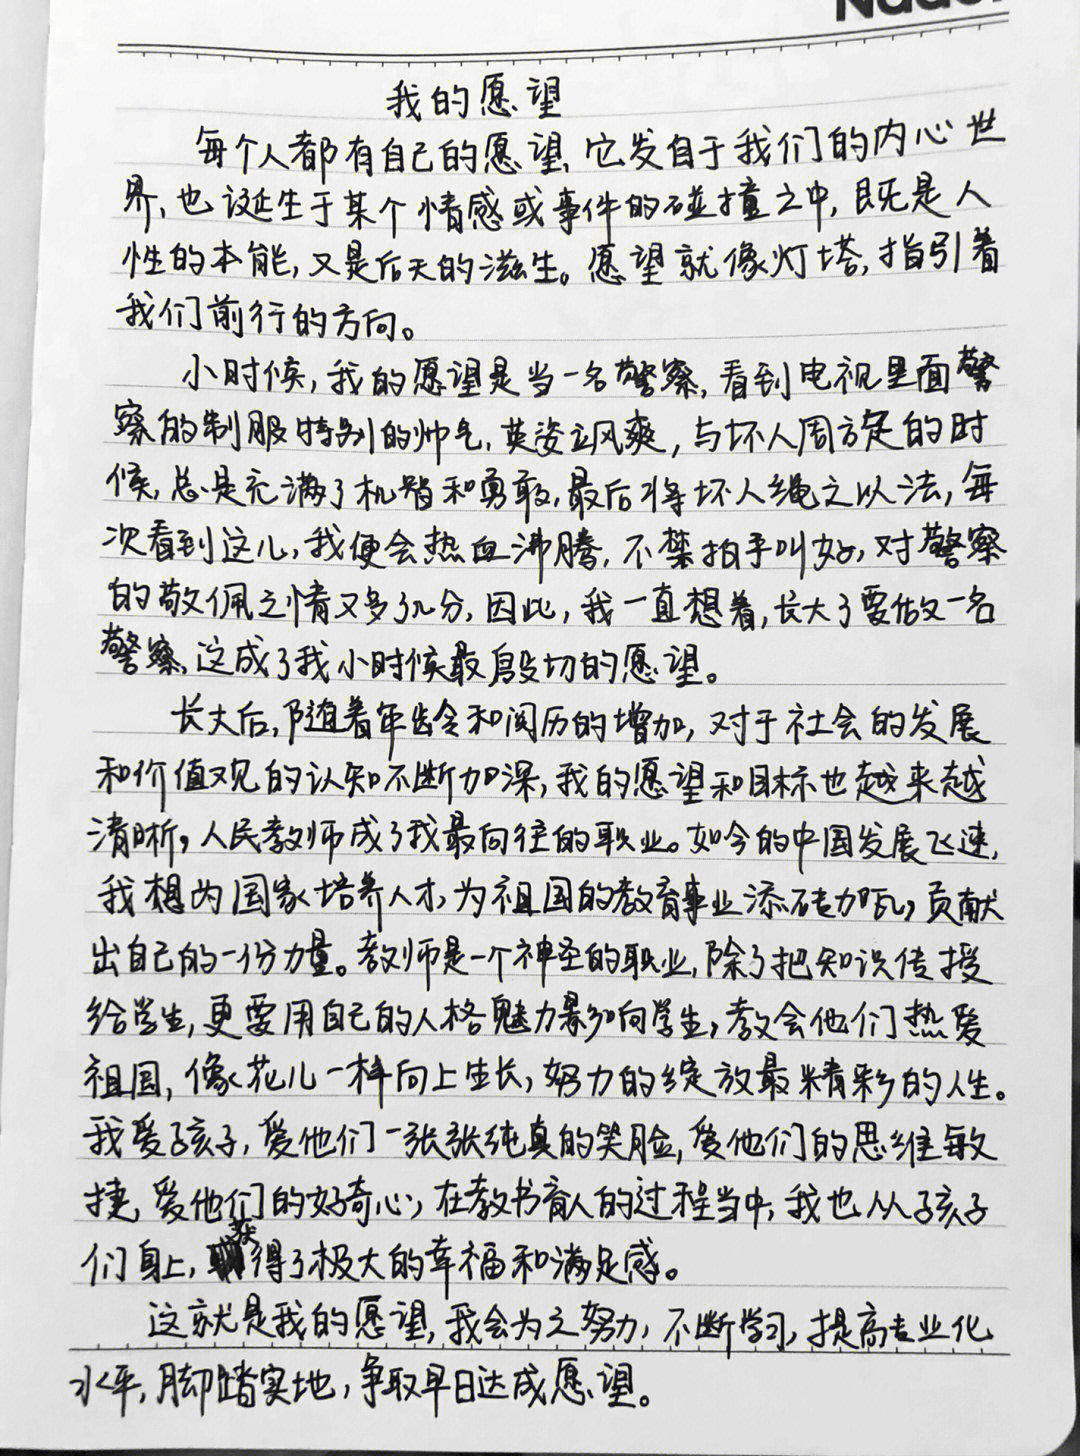 我的愿望
每个人都有自己的愿望,它发自于我们的内心世
界,也诞生于某个情感或事件的碰撞之中,既是人
性的本能,又是后天的滋生。愿望就像灯塔,指引着
我们前行的方向。
小时候,我的愿望是当一名警察,看到电视里面警
察的制服特别的帅气,英姿飒爽,与坏人周旋的时
候,总是充满了机智和勇敢,最后将坏人绳之以法,每
次看到这儿,我便会热血沸腾,不禁拍手叫好,对警察
的敬佩之情又多了几分,因此,我一直想着,长大了要做一名
警察,这成了我小时候最殷切的愿望。
长大后,随着年龄和阅历的增加,对于社会的发展
和价值观的认知不断加深,我的愿望和目标也越来越
清晰,人民教师成了我最向往的职业。如今的中国发展飞速,
我想为国家培养人才,为祖国的教育事业添砖加瓦,贡献
出自己的一份力量。教师是一个神圣的职业,除了把知识传授
给学生,更要用自己的人格魅力影响学生,教会他们热爱
祖国,像花儿一样向上生长,努力的绽放最精彩的人生。
我爱孩子,爱他们一张张纯真的笑脸,爱他们的思维敏
捷,爱他们的好奇心,在教书育人的过程当中,我也从孩子
们身上,获得了极大的幸福和满足感。
这就是我的愿望,我会为之努力,不断学习,提高专业化
水平,脚踏实地,争取早日达成愿望。